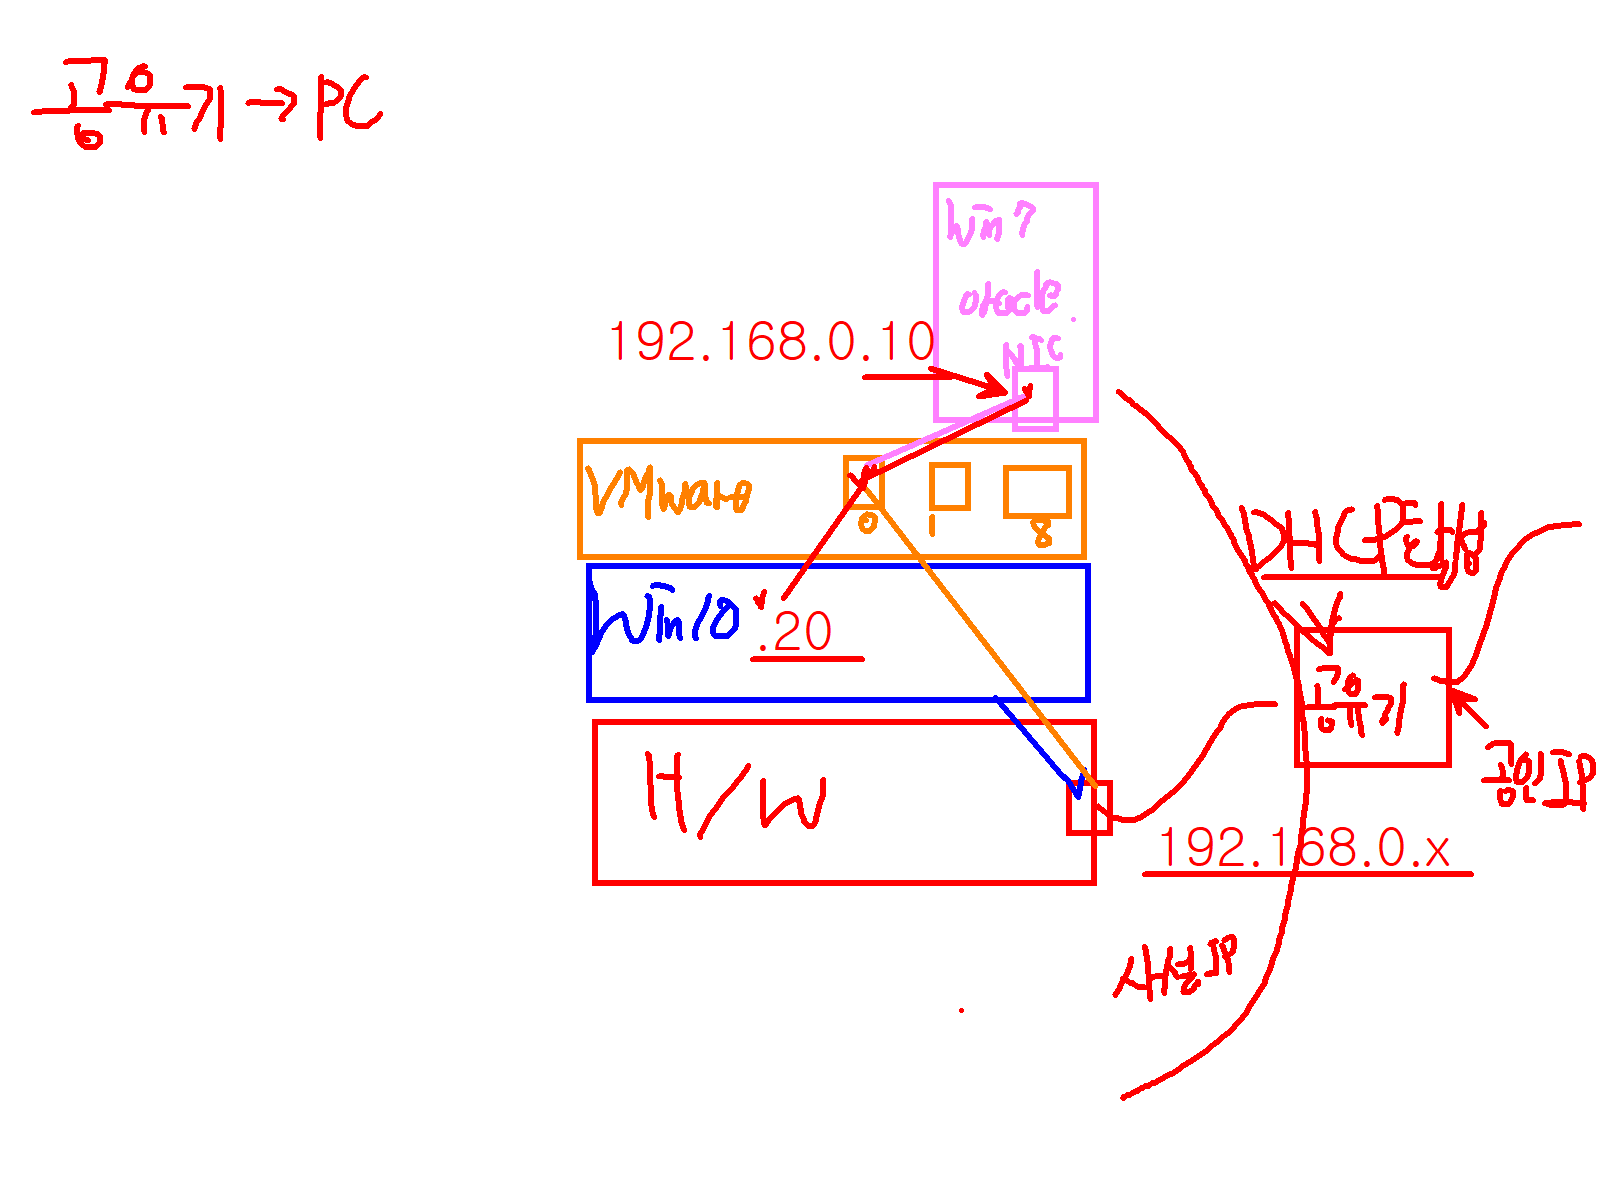 공유기→PC
Win7
oracle
NIC
192.168.0.10
VMware
0
1
8
Win10
.20
H/W
DHCP탑성
공유기
공인IP
192.168.0.x
사설IP